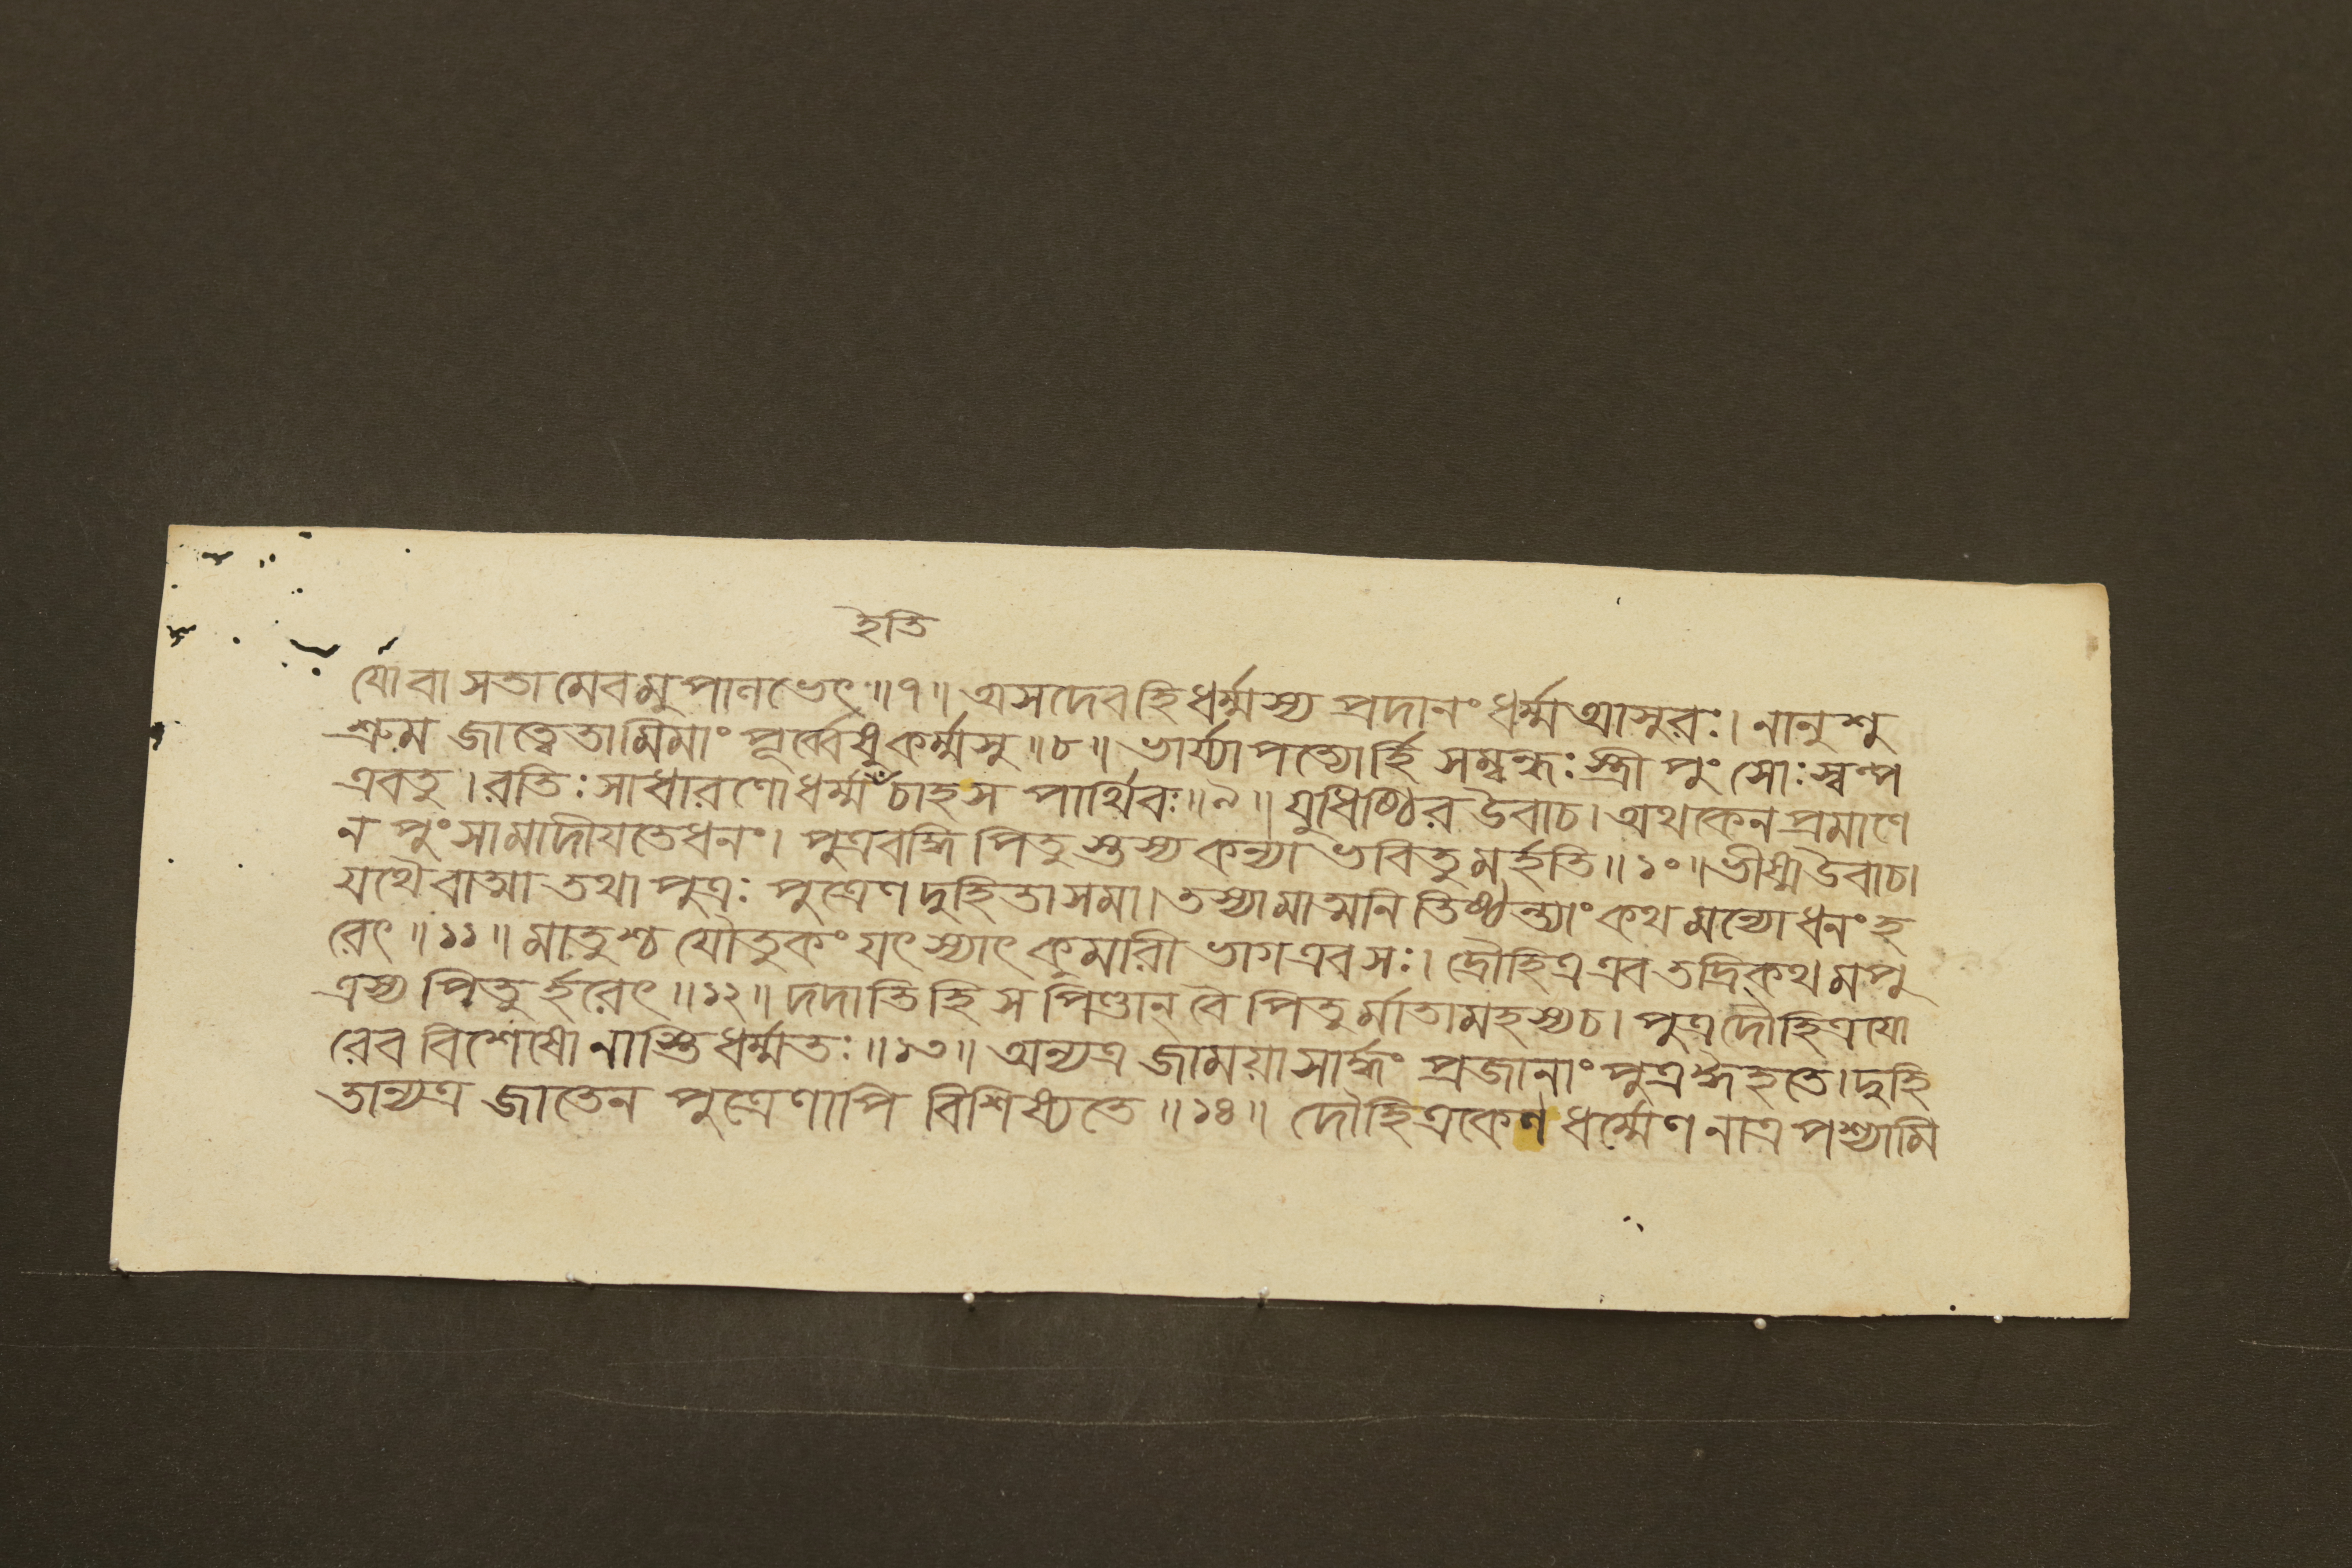 ইতি
যো বা সতামেবমুপালভেৎ ॥ ৭ ॥ অসদেব হি ধর্ম্মস্য প্রদানং ধর্ম্ম আসুরঃ । নানুশু
শ্রুম জাত্বেতামিমাং পূর্ব্বেষু কর্ম্মসু ॥ ৮ ॥ ভার্য্যাপত্যোর্হি সম্বন্ধঃ স্ত্রীপুংসোঃ স্বল্প
এব তু । রতিঃ সাধারণো ধর্ম্ম চাহ স পার্থিবঃ ॥ ৯ ॥ যুধিষ্ঠির উবাচ । অথ কেন প্রমাণে
ন পুংসামাদীয়তে ধনং । পুত্রবদ্ধি পিতুস্তস্য কন্যা ভবিতুমর্হতি ॥ ১০ ॥ ভীষ্ম উবাচ ।
যথৈবাত্মা তথা পুত্রঃ পুত্রেণ দুহিতা সমা । তস্যামাত্মনি তিষ্ঠন্ত্যাং কথমন্যো ধনং হ
রেৎ ॥ ১১ ॥ মাতুশ্চ যৌতুকং যৎ স্যাৎ কুমারীভাগ এব সঃ । দ্রৌহিত্র এব তদ্রিকথমপু
ত্রস্য পিতুর্হরেৎ ॥ ১২ ॥ দদাতি হি স পিণ্ডান্ বৈ পিতুর্মাতামহস্য চ । পুত্রদৌহিত্রযো
রেব বিশেষো নাস্তি ধর্ম্মতঃ ॥ ১৩ ॥ অন্যত্র জাময়া সার্দ্ধং প্রজানাং পুত্র ঈহতে । দুহি
তান্যত্র জাতেন পুত্রেণাপি বিশিষ্যতে ॥ ১৪ ॥ দৌহিত্রকেণ ধর্ম্মেণ নাত্র পশ্যামি